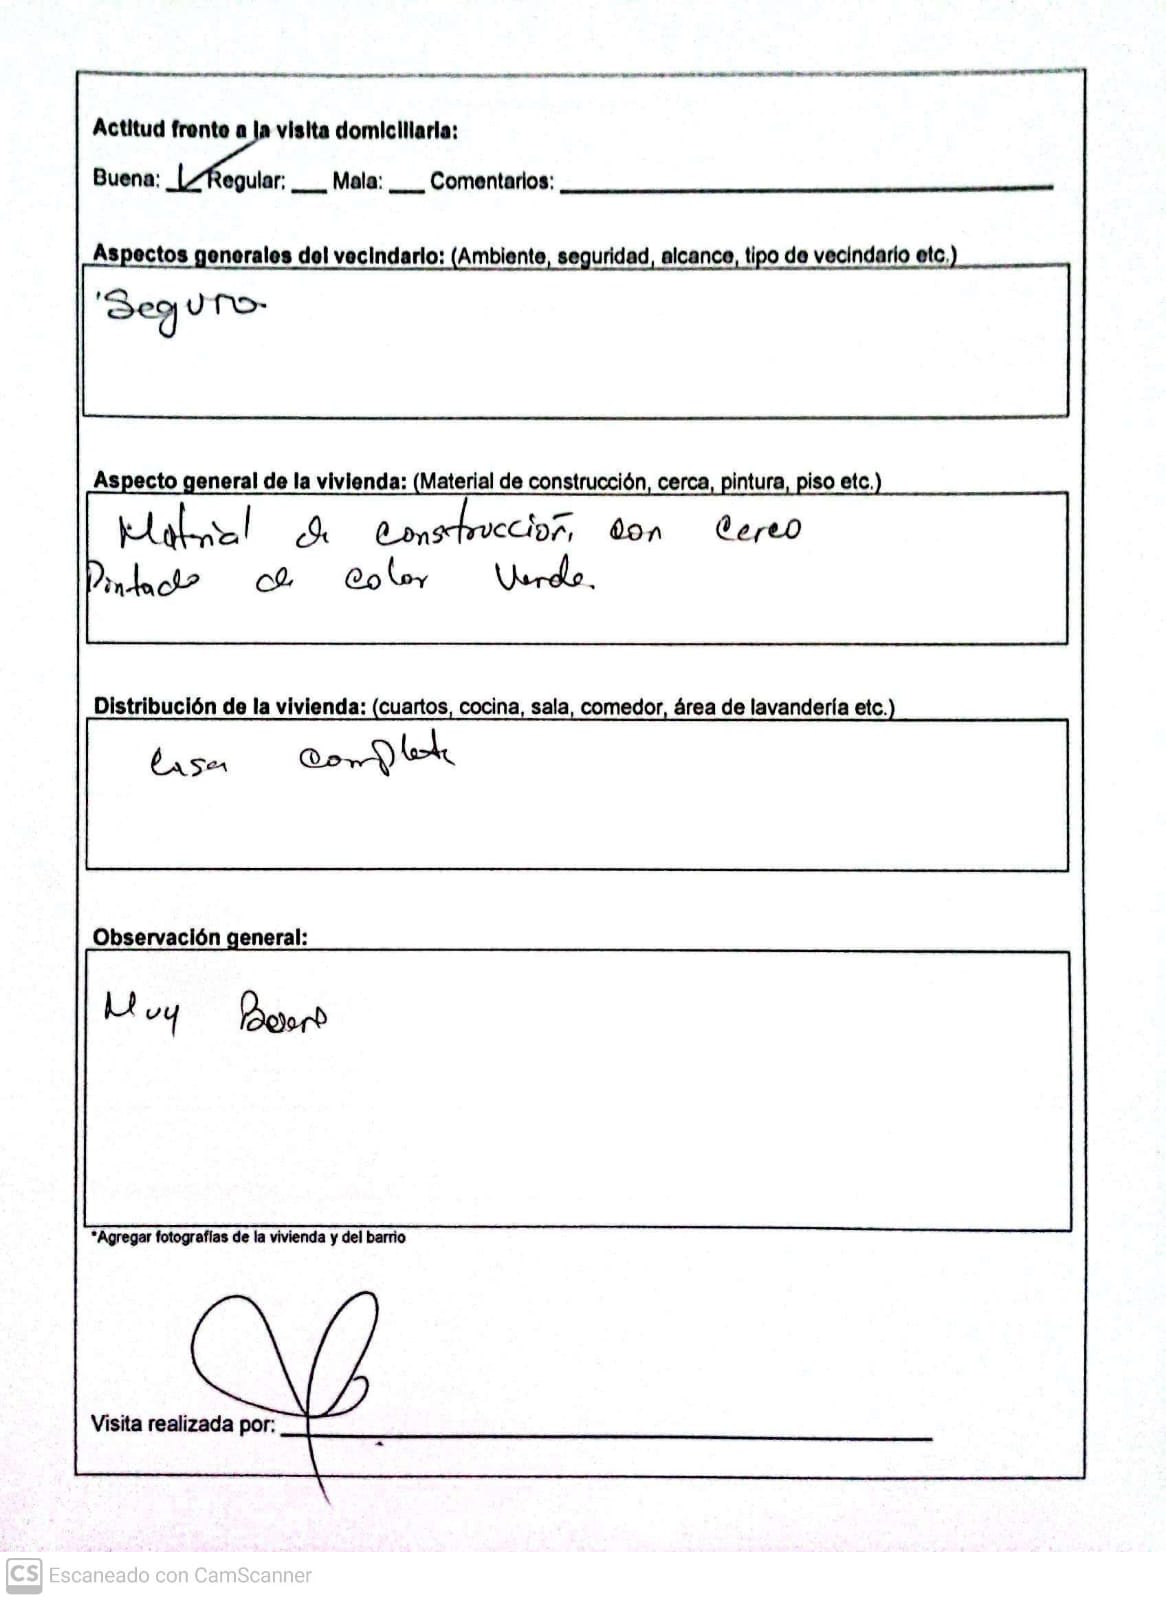 Actitud frente a la visita domiciliaria:
Buena: ___ Regular: ___ Mala: ___ Comentarios: ___
Aspectos generales del vecindario: (Ambiente, seguridad, alcance, tipo de vecindario etc.)
Seguro
Aspecto general de la vivienda: (Material de construcción, cerca, pintura, piso etc.)
Material de construcción, con cerco
Pintado de color Verde.
Distribución de la vivienda: (cuartos, cocina, sala, comedor, área de lavandería etc.)
Casa completa
Observación general:
Muy
*Agregar fotografías de la vivienda y del barrio
Visita realizada por:
CS Escaneado con CamScanner